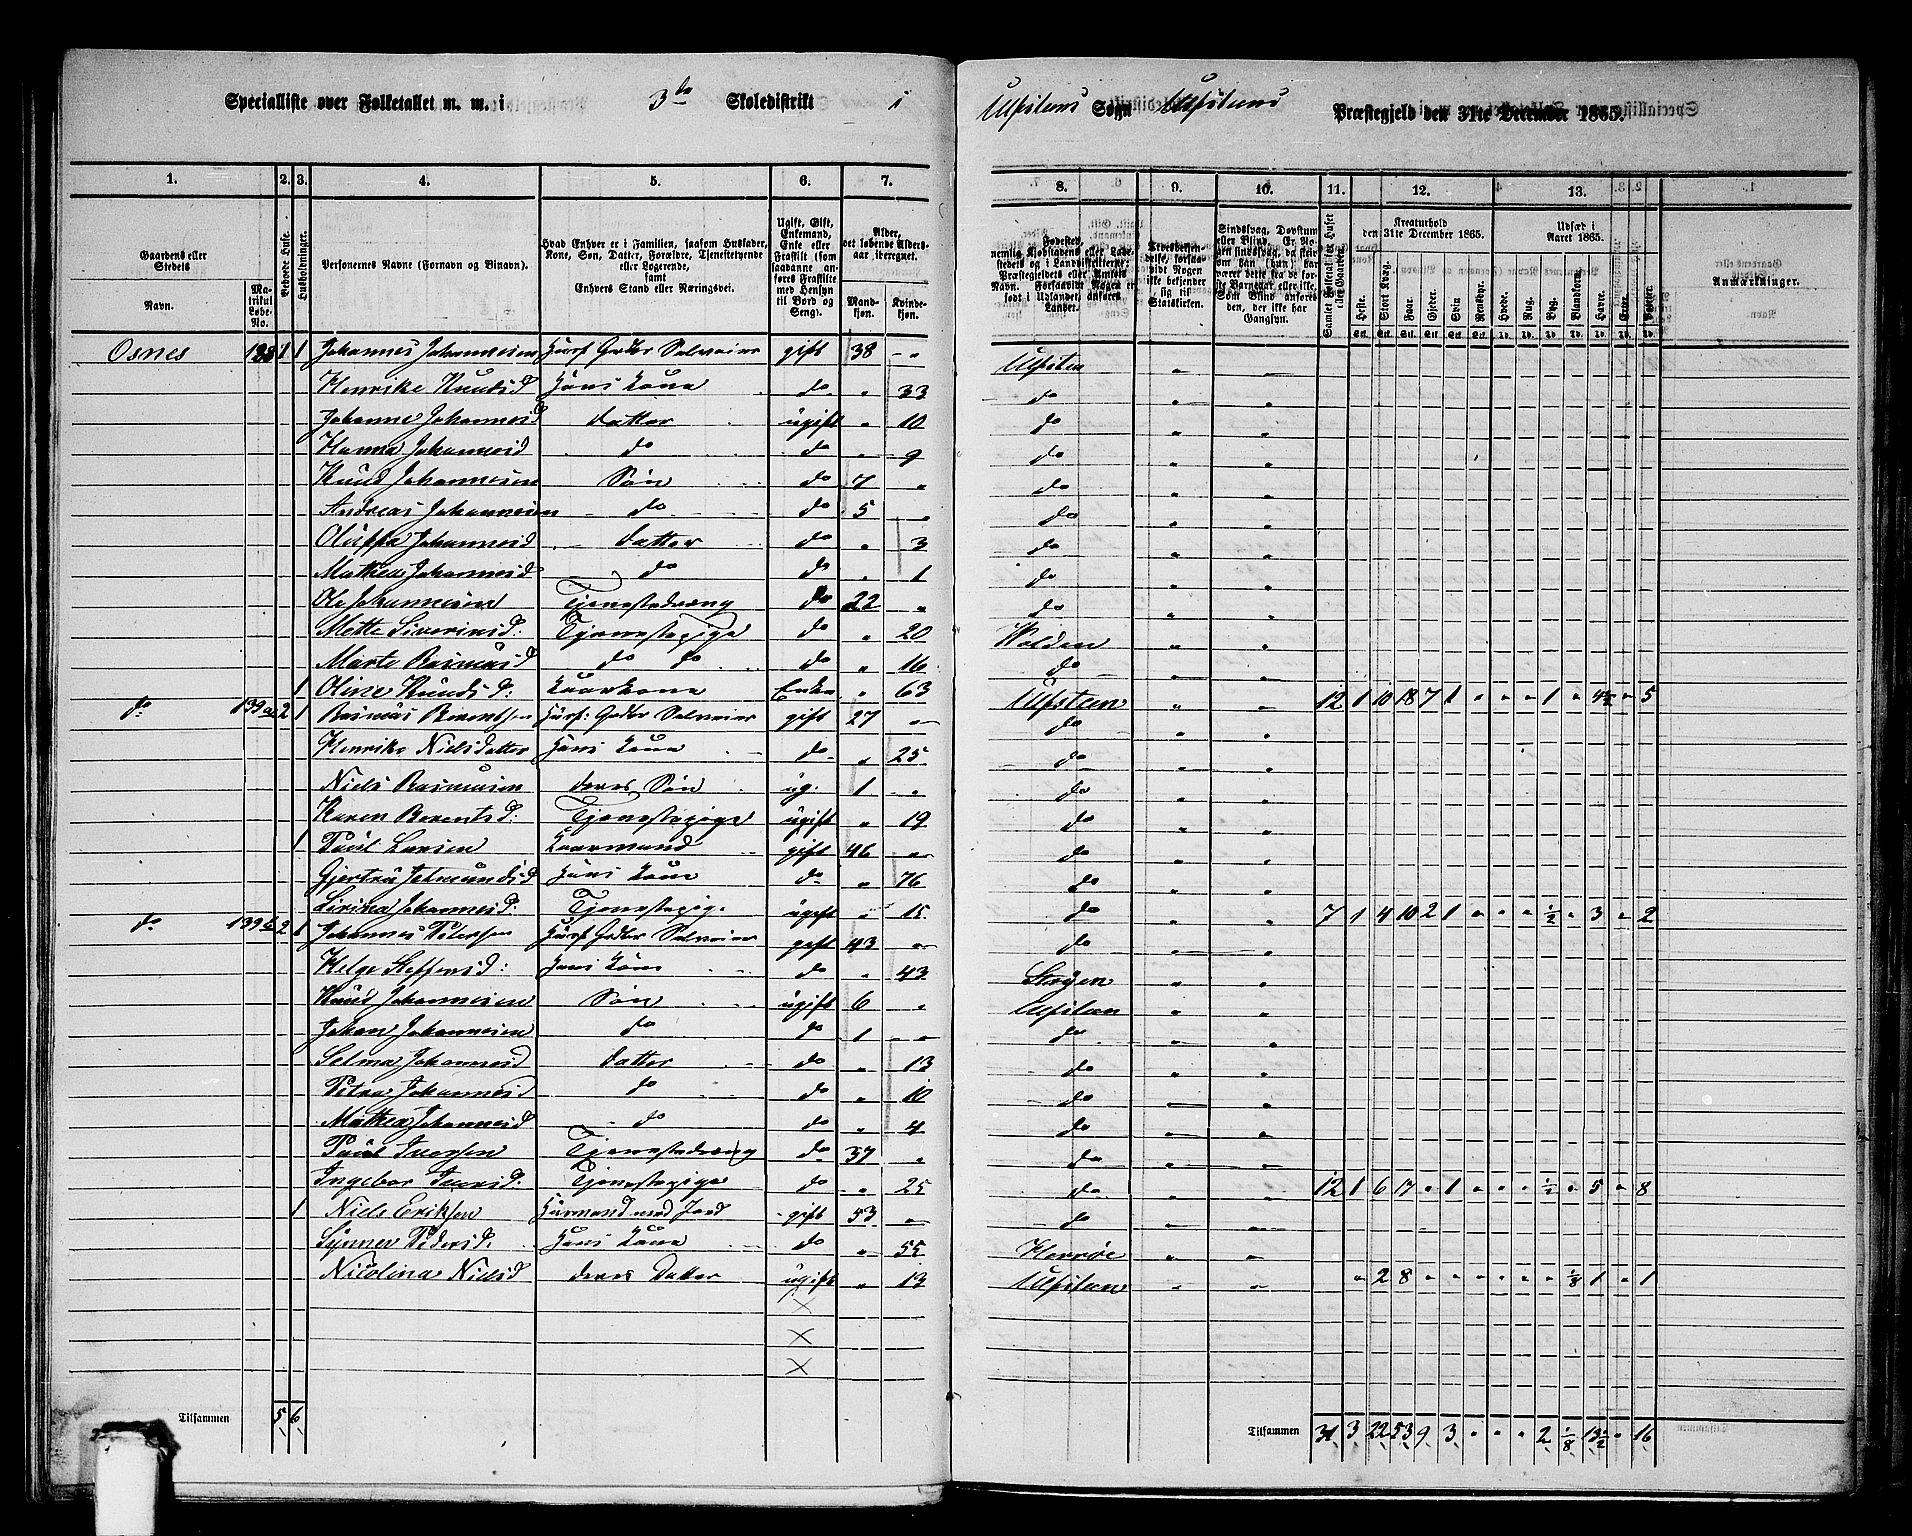 Specialliste over Folketallet m. m. i 3die Skoledistrikt i Ulfstens Sogn Ulfstens Præstegjeld den 31te December 1865.
1. 2. 3. 4. 5. 6. 7. 8. 9. 10. 11. 12. 13.
Gaardens eller Stedets Navn. Matrikul Løbe-No. Beboede Huse. Husholdninger. Personernes Navne (Fornavn og Tilnavn).
Hvad Enhver er i Familien, saasom Husfader, Kone, Søn, Datter, Forældre, Tjenestetyende eller Logerende, samt Enhvers Stand eller Næringsvei.
Ugift, Gift, Enkemand, Enke eller Fraskilt (som saadanne anføres Fraskilte med Hensyn til Bord og Seng).
Alder, det løbende Aldersaar iberegnet. Mandkjøn. Kvindekjøn.
Kreaturhold den 31te December 1865. Udsæd i Aaret 1865. Anmærkninger.
Osnes 1 1 Johannes Johannesen Husf Gbder Selveier gift 38 " Ulfsten " "
Henrike Knudsd Hans Kone do " 33 do " "
Johanne Johannesd Datter ugift " 10 do " "
Hanna Johannesd do do " 9 do " "
Knud Johannesen Søn do 7 " do " "
Andreas Johannesen do do 5 " do " "
Oluffa Johannesd Datter do " 3 do " "
Mathea Johannesd do do " 1 do " "
Ole Johannesen Tjenestedreng do 22 " do " "
Mette Siverinsd: Tjenestepige do " 20 Volden " "
Marte Rasmusd do do do " 16 do " "
1 Oline Knudsd: Kaarkone Enke " 63 Ulfsten " " 12 1 10 18 7 1 " " " 1 " 4½ " 5
do 139a 2 1 Rasmus Berentsen Husf: Gbder Selveier gift 27 " do " "
Henrike Nielsdatter Hans Kone do " 25 do " "
Niels Rasmusen deres Søn ug. 1 " do " "
Karen Berentsd: Tjenestepige ugift " 19 do " "
1 Poul Larsen Kaarmand gift 46 " do " "
Gjertru Jetmundsd Hans Kone do " 76 do " "
Johannesd: Tjenestepig. ugift " 15 do " " 7 1 4 10 2 1 " " " ½ " 3 " 2
do 139b 2 1 Johannes Petersen Husf Gbder Selveier gift 43 " do " "
Helge Steffensd: Hans Kone do " 43 " "
Knud Johannesen Søn ugift 6 " Ulfsten " "
Johan Johannesen do do 1 " do " "
Selma Johannesd Datter do " 13 do " "
Petra Johannesd do do " 10 do " "
Mathea Johannesd do do " 4 do " "
Poul Iversen Tjenestedreng do 37 " do " "
Ingebor Iversd: Tjenestepige do " 25 do " " 12 1 6 17 " 1 " " " ½ " 5 " 8
1 Niels Eriksen Husmand med Jord gift 53 " do " "
Synnev Pedersd. Hans Kone do " 55 Herröe " "
Nicolina Nielsd deres Datter ugift " 13 Ulfsten " " " 2 8 " " " " " " ⅛ 1 " 1
×
×
×
Tilsammen 5 6 Tilsammen 31 3 22 53 9 3 " " " 2 ⅛ 13½ " 16